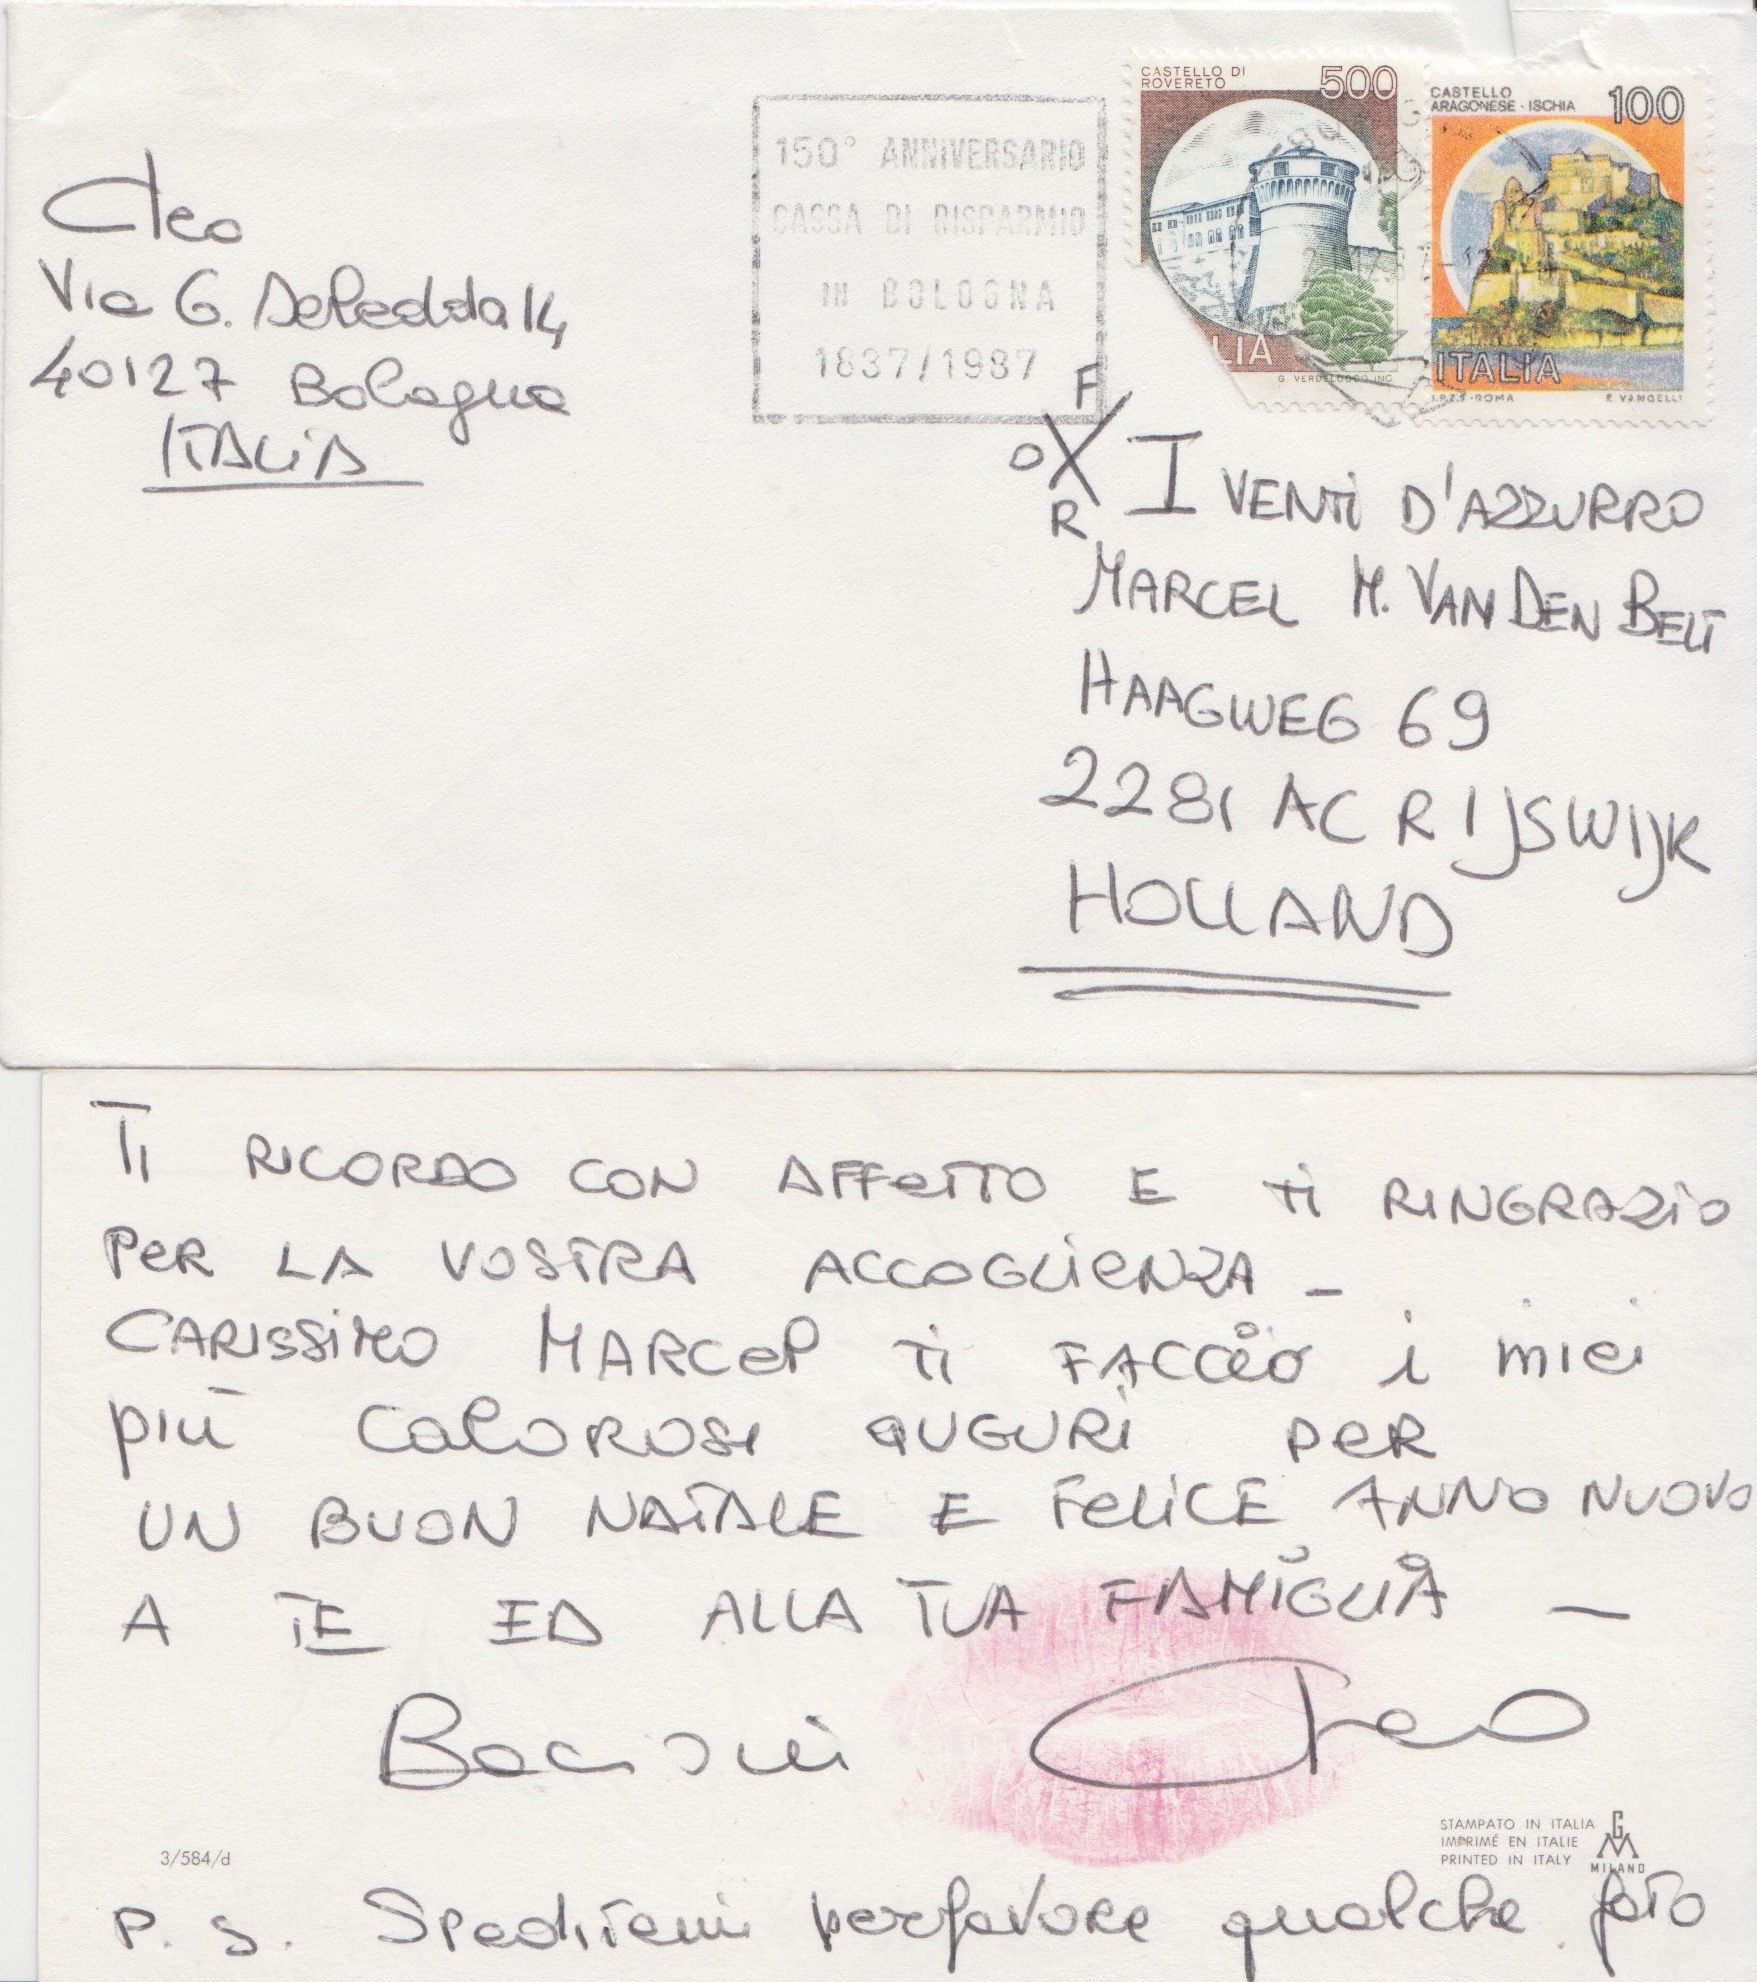 CASTELLO DI
ROVERETO
500
CASTELLO
ARAGONESE - ISCHIA
100
150° ANNIVERSARIO
CASSA DI RISPARMIO
IN BOLOGNA
1837/1987
LIA
G. VERDELOCCO INC.
ITALIA
I.P.Z.S - ROMA
E. VANGELLI
Cleo
Via G. Deledda 14
40127 Bologna
ITALIA
F
O X
R
I VENTI D'AZZURRO
MARCEL M. VAN DEN BELT
HAAGWEG 69
2281 AC RIJSWIJK
HOLLAND
TI RICORDO CON AFFETTO E TI RINGRAZIO
PER LA VOSTRA ACCOGLIENZA -
CARISSIMO MARCEL TI FACCIO i miei
più CALOROSI AUGURI PER
UN BUON NATALE E FELICE ANNO NUOVO
A TE ED ALLA TUA FAMIGLIA -
Bacioni Cleo
3/584/d
STAMPATO IN ITALIA
IMPRIMÉ EN ITALIE
PRINTED IN ITALY
GM
MILANO
P. S. Speditemi perfavore qualche foto